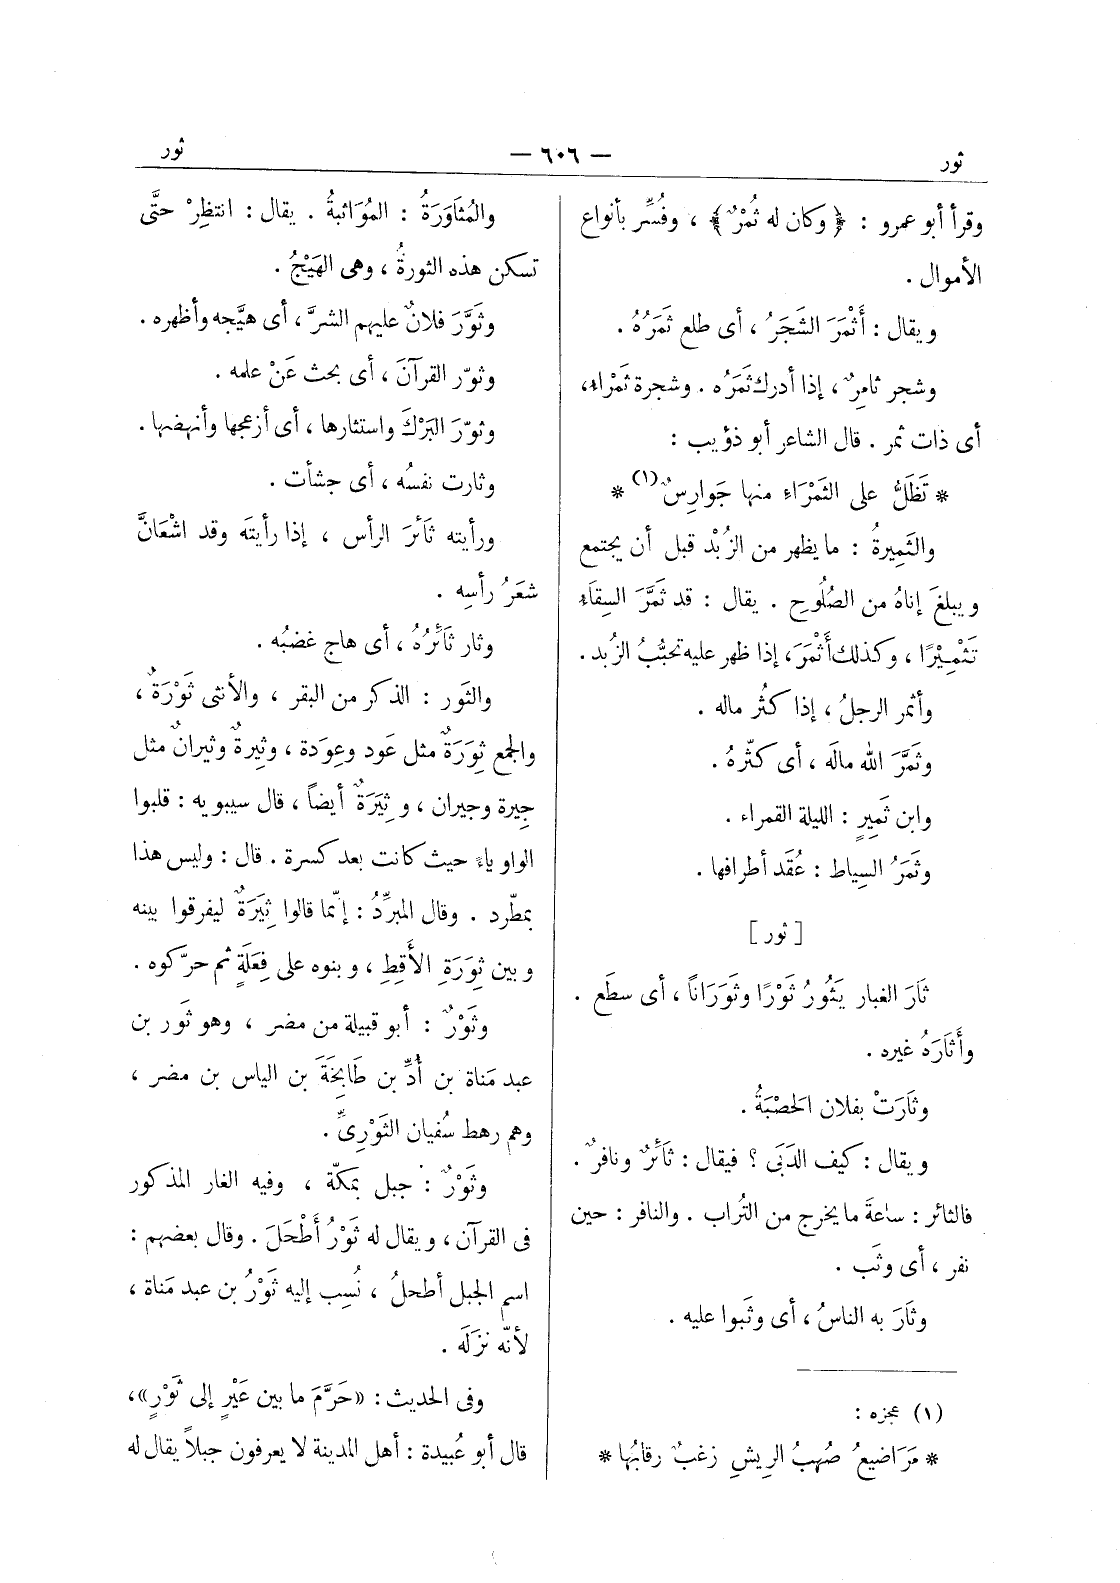 ثور
— ٦٠٦ —
ثور
وقرأ أبو عمرو : ﴿ وكان له ثُمْرٌ ﴾ ، وفُسِّر بأنواع
الأموال .
ويقال : أَثْمَرَ الشَّجَرُ ، أى طلع ثَمَرُهُ .
وشجر ثامِرٌ ، إذا أدرك ثَمَرُه . وشجرة ثَمْراء ،
أى ذات ثمر . قال الشاعر أبو ذؤيب :
* تَظَلُّ على الثَمْرَاءِ منها جَوارِسٌ (١) *
والثَمِيرةُ : ما يظهر من الزُبْد قبل أن يجتمع
ويبلغَ إناهُ من الصُلُوح . يقال : قد ثَمَّرَ السِقاء
تَثْمِيْرًا ، وكذلك أَثْمَرَ ، إذا ظهر عليه تحبُّبُ الزُبد .
وأثمر الرجلُ ، إذا كثُر ماله .
وثَمَّرَ الله مالَه ، أى كثّرهُ .
وابن ثَمِيرٍ : الليلة القمراء .
وثَمَرُ السِياط : عُقَد أطرافها .
[ ثور ]
ثَارَ الغبار يَثُورُ ثَوْرًا وثَوَرَانًا ، أى سطَع .
وأَثَارَهُ غيره .
وثَارَتْ بفلان الحَصْبَةُ .
ويقال : كيف الدَبَى ؟ فيقال : ثَائرٌ ونافرٌ .
فالثائر : ساعةَ ما يخرج من التُراب . والنافر : حين
نفر ، أى وثَب .
وثَارَ به الناسُ ، أى وثَبوا عليه .
(١) عجزه :
* مَرَاضيعُ صُهبُ الريشِ زغبٌ رقابُها *
والمُثَاوَرَةُ : المُوَاثبةُ . يقال : انتظِرْ حتَّى
تسكن هذه الثورةُ ، وهى الهَيْجُ .
وثَوَّرَ فلانٌ عليهم الشرَّ ، أى هيَّجه وأظهره .
وثوّر القرآنَ ، أى بحث عَنْ علمه .
وثوّرَ البَرْكَ واستثارها ، أى أزعجها وأنهضها .
وثارت نفسُه ، أى جشأت .
ورأيته ثَائرَ الرأس ، إذا رأيتَه وقد اشْعَانَّ
شعَرُ رأسِه .
وثار ثَائرُهُ ، أى هاج غضبُه .
والثَور : الذكر من البقر ، والأنثى ثَوْرَةٌ ،
والجمع ثِوَرَةٌ مثل عَود وعِوَدة ، وثيرةٌ وثيرانٌ مثل
جِيرة وجيران ، و ثِيَرَةٌ أيضاً ، قال سيبويه : قلبوا
الواو ياءً حيث كانت بعد كسرة . قال : وليس هذا
بمطّرد . وقال المبرِّدُ : إنّما قالوا ثِيَرَةٌ ليفرقوا بينه
وبين ثِوَرَةِ الأَقِطِ ، وبنوه على فِعَلَةٍ ثم حرّكوه .
وثَوْرٌ : أبو قبيلة من مضر ، وهو ثَور بن
عبد مَناة بن أُدِّ بن طَابِخَةَ بن الياس بن مضر ،
وهم رهط سُفيان الثَوْرِىِّ .
وثَوْرٌ : جبل بمكّة ، وفيه الغار المذكور
فى القرآن ، ويقال له ثَوْرُ أَطْحَلَ . وقال بعضهم :
اسم الجبل أطحلُ ، نُسِب إليه ثَوْرُ بن عبد مَناة ،
لأنّه نزلَه .
وفى الحديث : «حَرَّمَ ما بين عَيْرٍ إلى ثَوْرٍ» ،
قال أبو عُبيدة : أهل المدينة لا يعرفون جبلاً يقال له